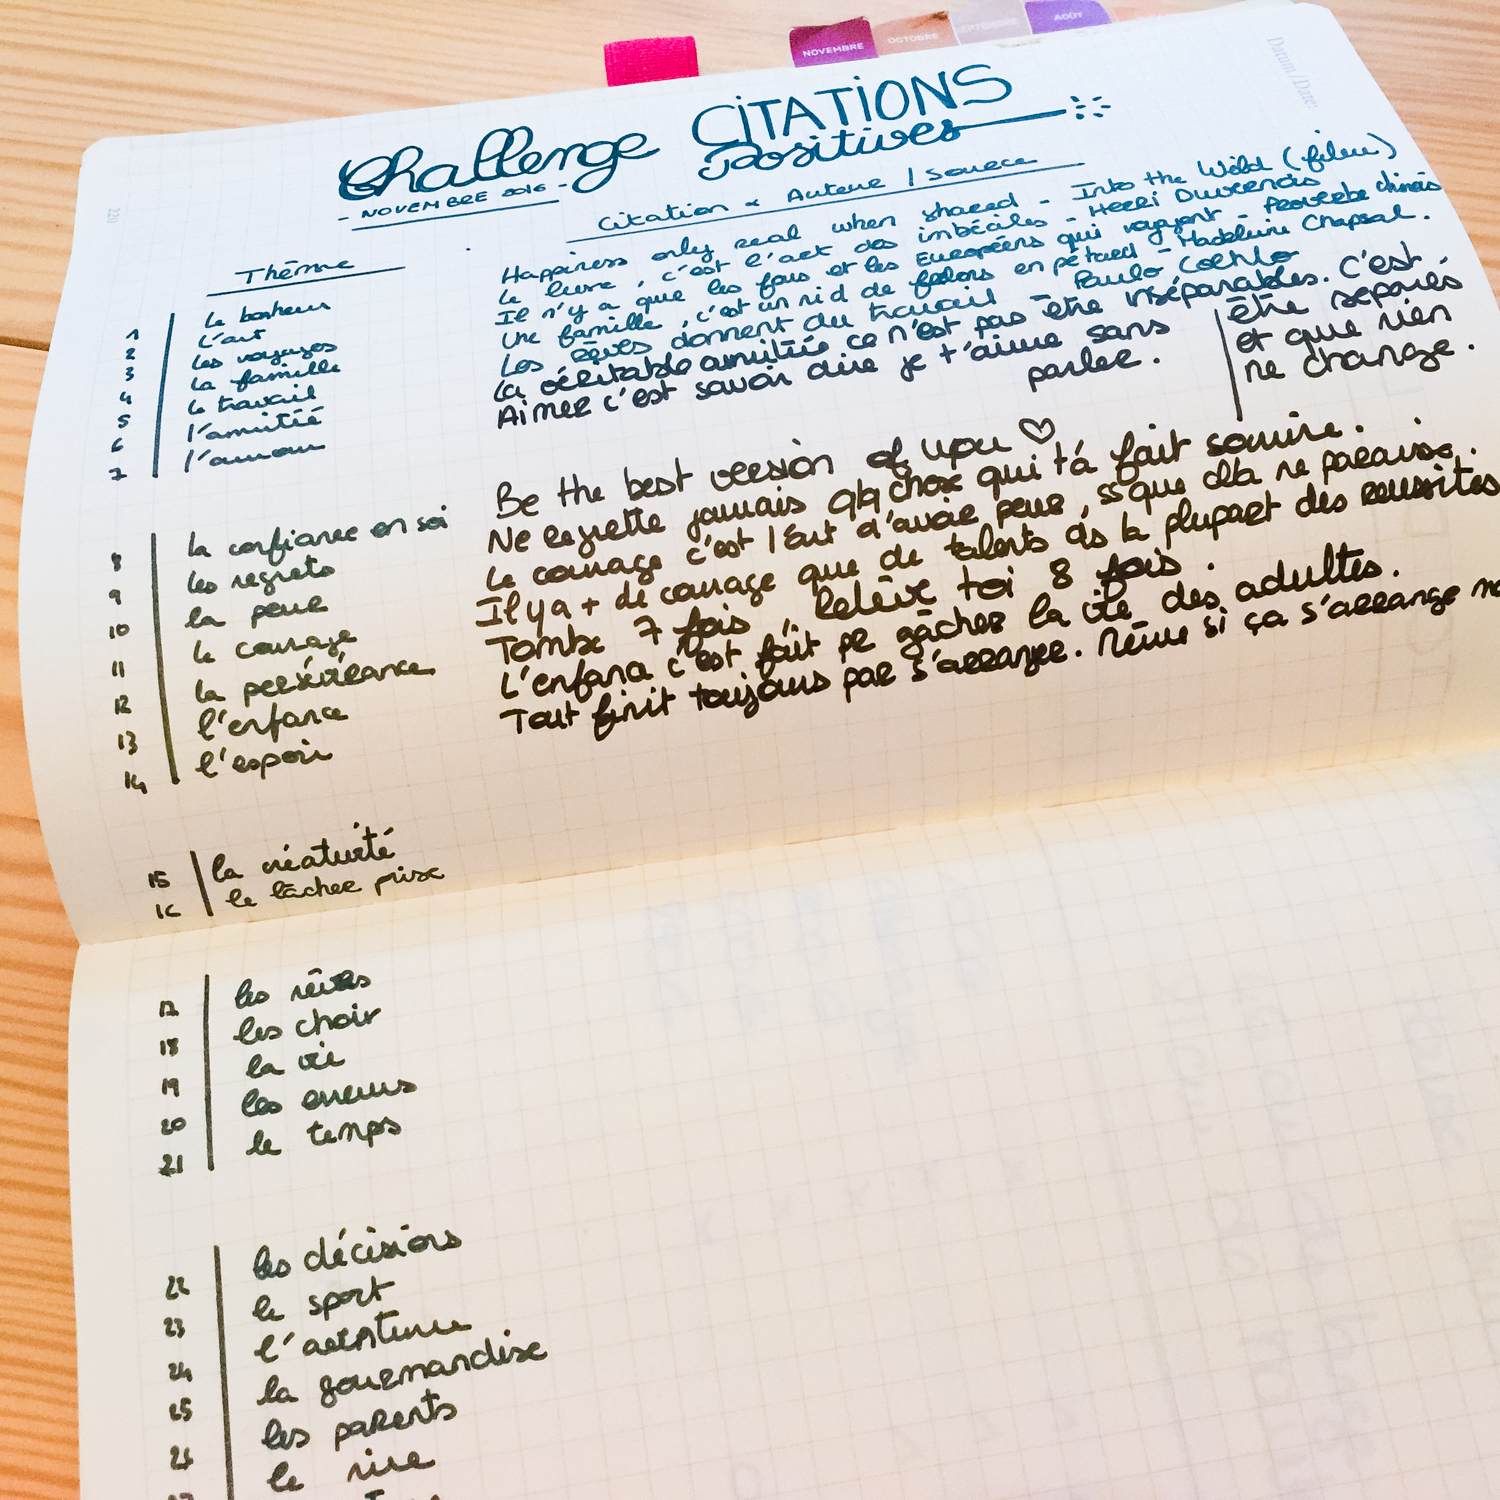 NOVEMBRE OCTOBRE SEPTEMBRE AOÛT
Datum/Date:
220
Challenge CITATIONS
Positives
- NOVEMBRE 2016 -
Thème
Citation & Auteur / Source
1 le bonheur Happiness only real when shared - Into the Wild (film)
2 l'art Le livre, c'est l'art des imbéciles - Henri Duvernois
3 les voyages Il n'y a que les fous et les Européens qui voyagent - Proverbe chinois
4 la famille Une famille, c'est un nid de felons en pétard - Madeleine Chapsal.
5 le travail Les rêves donnent du travail - Paulo Coehlo
6 l'amitié La véritable amitiée ce n'est pas être inséparables. C'est être séparés et que rien ne change.
7 l'amour Aimer c'est savoir dire je t'aime sans parler.
8 la confiance en soi Be the best version of you ♡
9 les regrets Ne regrette jamais qlq chose qui t'a fait sourire.
10 la peur Le courage c'est l'art d'avoir peur, ss que cela ne paraisse.
11 le courage Il y a + de courage que de talents ds la plupart des reussites
12 la persévérance Tombe 7 fois, Relève toi 8 fois.
13 l'enfance L'enfance c'est fait pr gâcher la vie des adultes.
14 l'espoir Tout finit toujours par s'arranger. Même si ça s'arrange
15 la créativité
16 le lâcher prise
17 les rêves
18 les choix
19 la vie
20 les erreurs
21 le temps
22 les décisions
23 le sport
24 l'aventure
25 la gourmandise
26 les parents
27 le rire